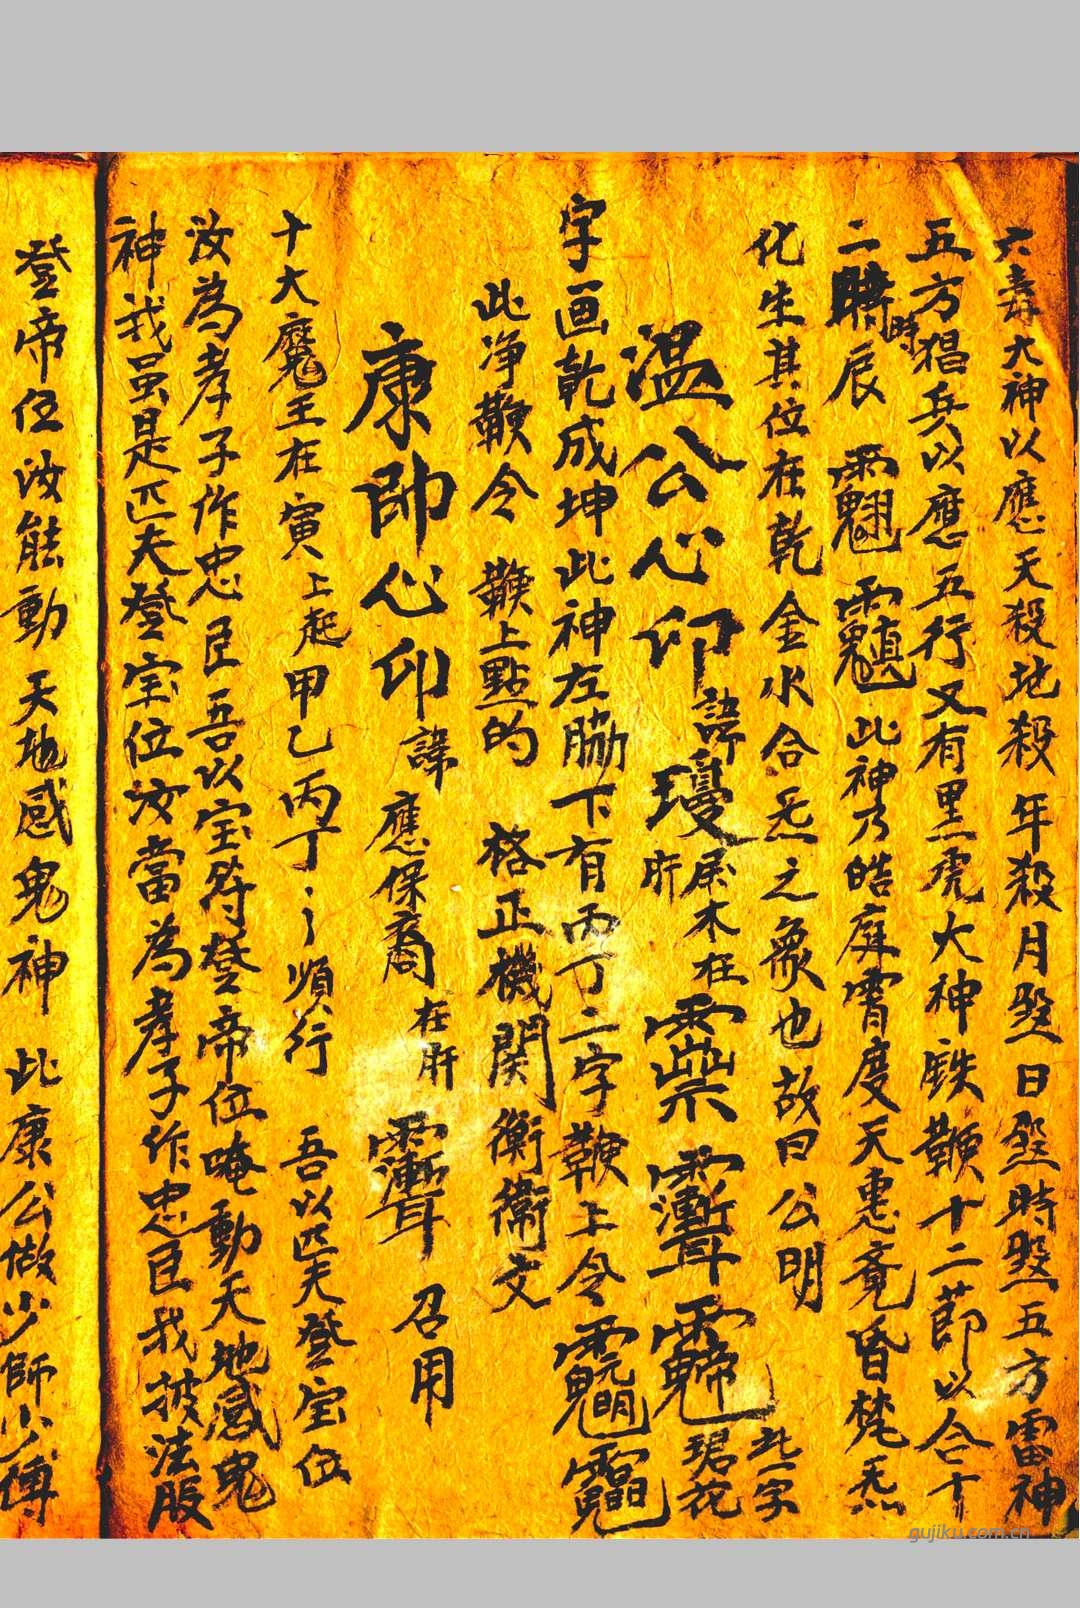 六毒大神以應天殺地殺年殺月煞日煞時煞五方雷神
五方猖兵以應五行又有黑虎大神鉄鞭十二節以合十
二時時辰 此神乃皓庭霄度天惠竟昏梵炁
化生其位在乾金水合炁之象也故曰公明
溫公心印諱瓊屬木在肝 此字珺花
字画乾成坤此神左脇下有丙丁二字鞭上令
此净鞭令 鞭上點的 格正機関衡衛文
康帥心印諱應保裔在肝 召用
十大魔王在寅上起甲乙丙丁丶丶順行 吾以匹夫登宝位
汝為孝子作忠臣吾以宝符登帝位唵動天地感鬼
神我虽是匹夫登宝位汝當為孝子作忠臣我披法服
登帝位汝能動天地感鬼神 此康公做少師少傅
gujiku.com.cn